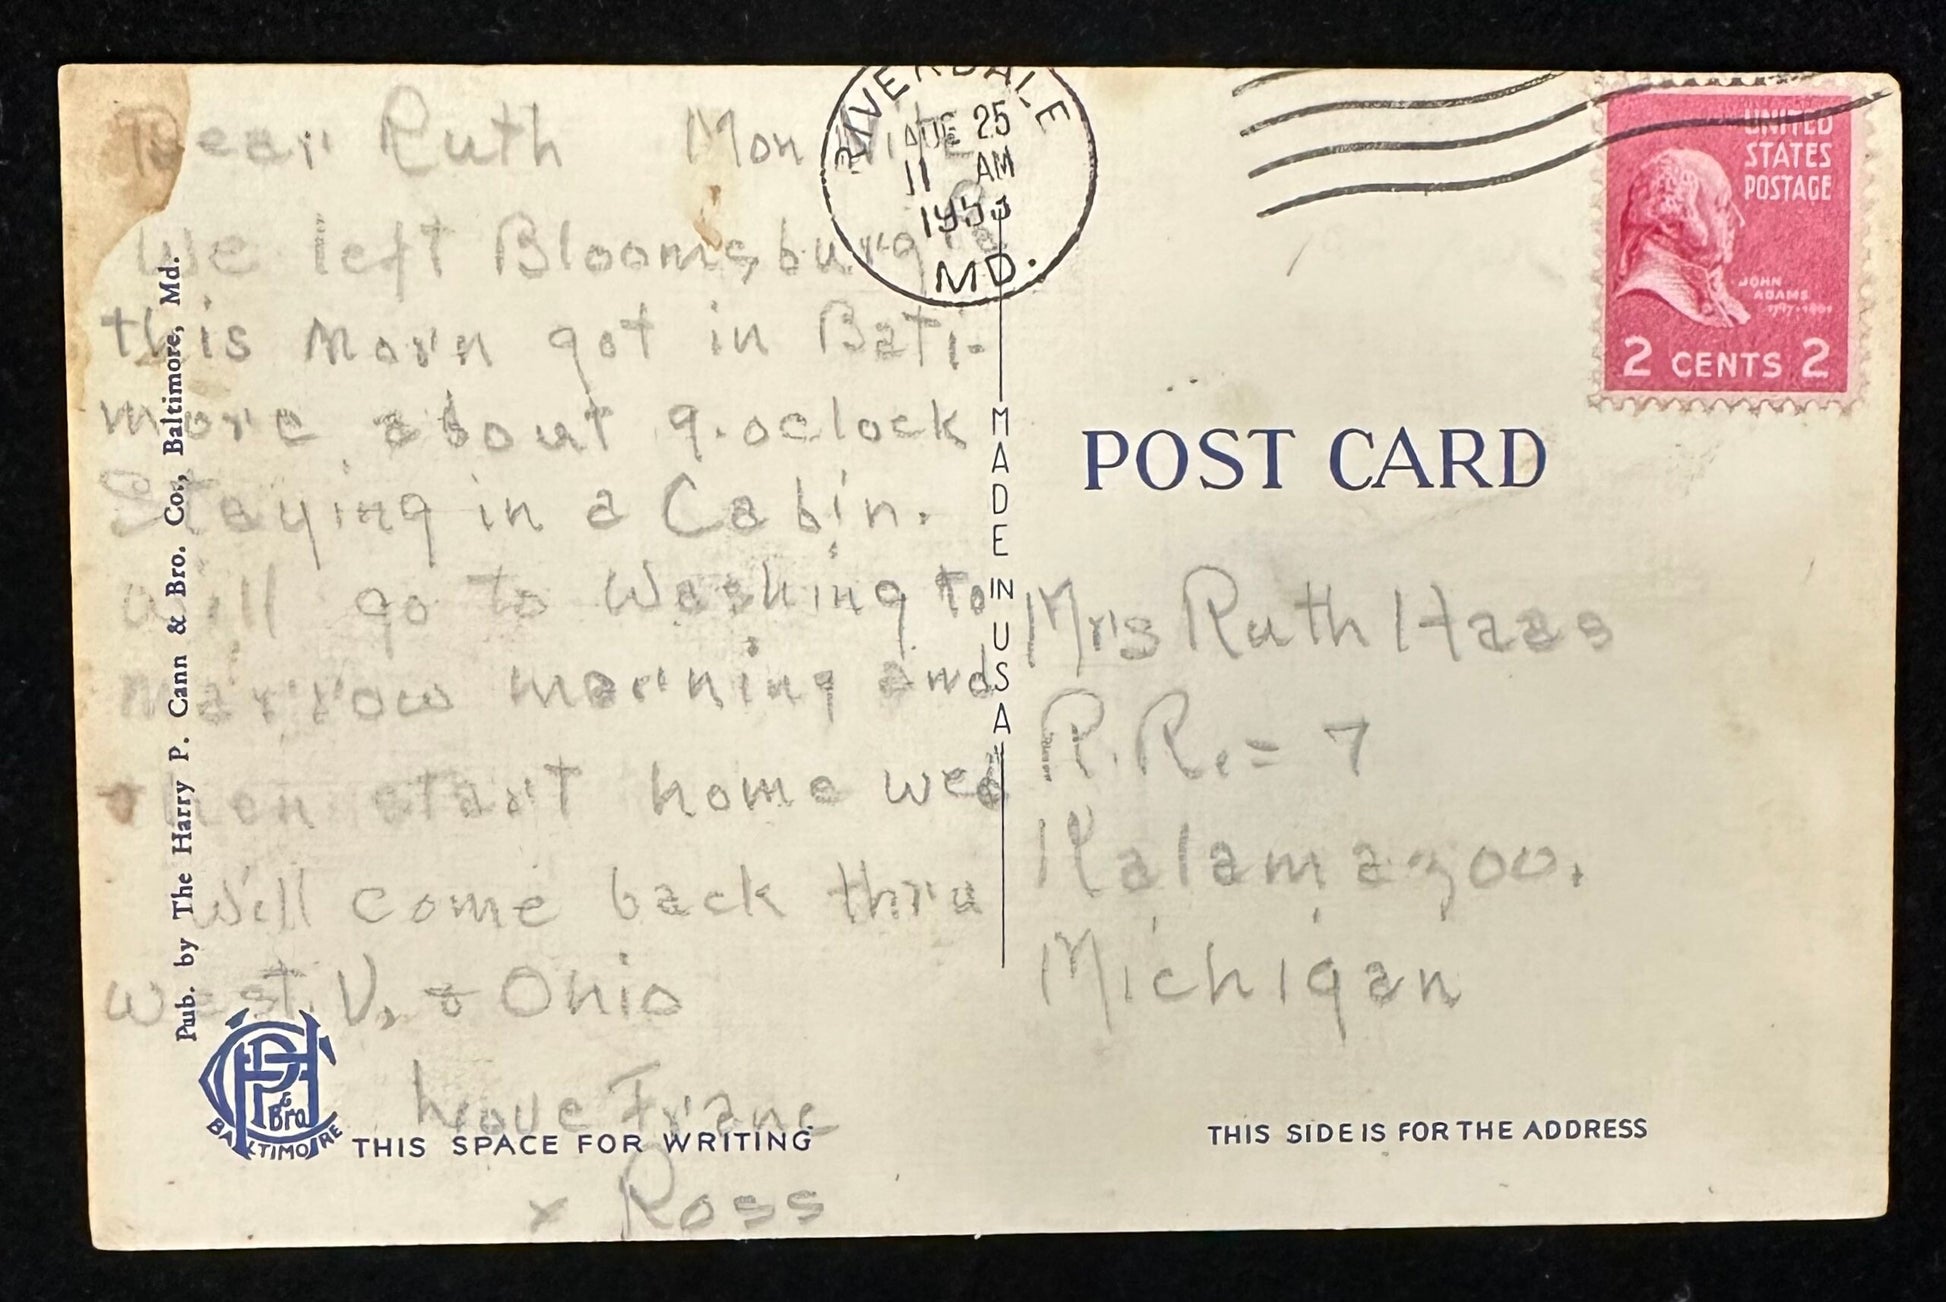 Dear Ruth Mon Nite
We left Bloomsburg Pa
this morn got in Bati-
more about 9.oclock
Staying in a Cabin.
will go to Washing to
marrow morning and
then start home wed
Will come back thru
west. V. & Ohio
Love Franc
x Ross
Pub. by The Harry P. Cann & Bro. Co., Baltimore, Md.
HPC & Bro
BALTIMORE
THIS SPACE FOR WRITING
RIVERDALE
AUG 25
11 AM
MD.
MADE IN USA
UNITED
STATES
POSTAGE
JOHN
ADAMS
1797·1801
2 CENTS 2
POST CARD
Mrs Ruth Haas
R.R. = 7
Kalamazoo.
Michigan
THIS SIDE IS FOR THE ADDRESS